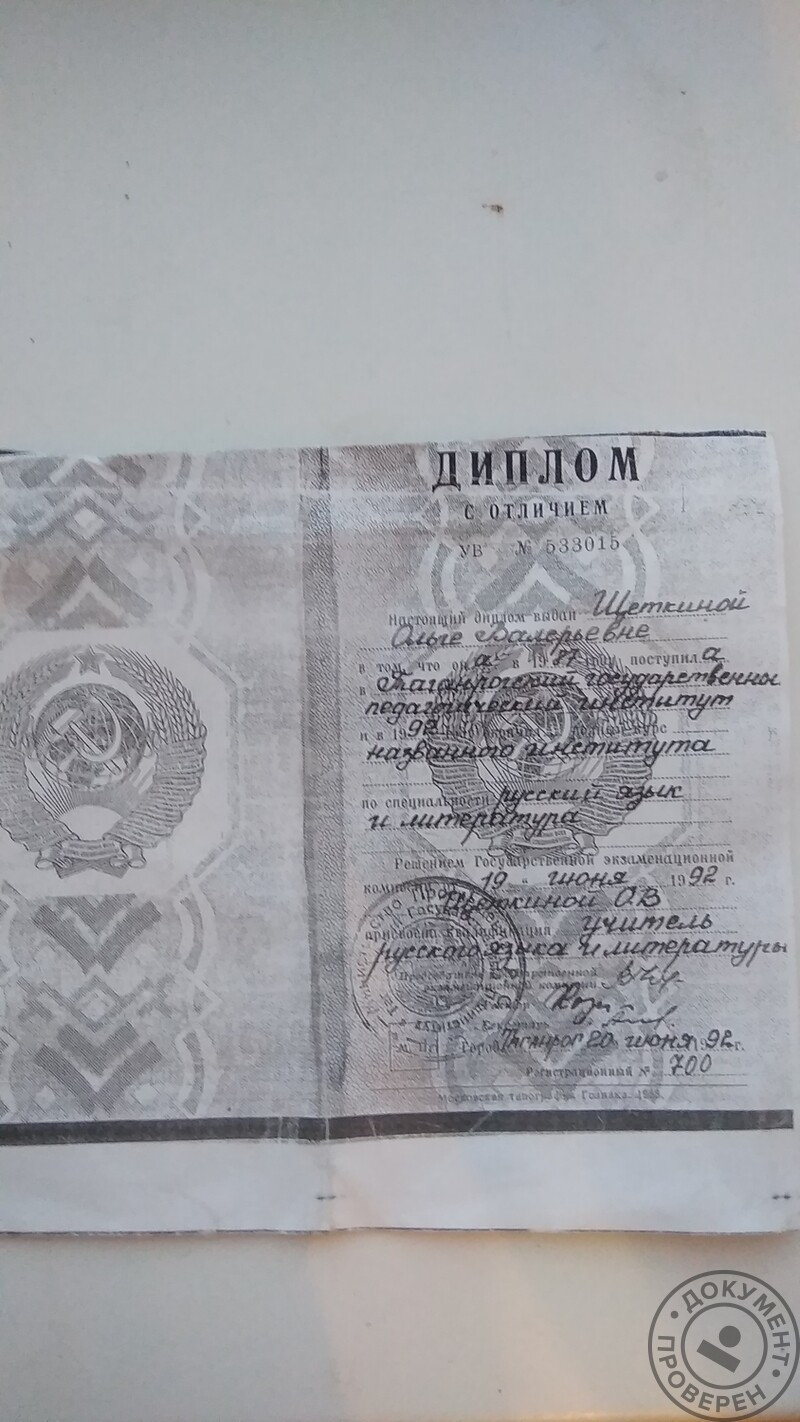 ДИПЛОМ
С ОТЛИЧИЕМ
УВ № 533015
Настоящий диплом выдан Щеткиной
Ольге Валерьевне
в том, что он а в 1987 году поступил а
в Таганрогский государственны
педагогический институт
и в 1992 году окончил а полный курс
названного института
по специальности русский язык
и литература
Решением Государственной экзаменационной
комиссии 19 " июня 1992 г.
Щеткиной О.В
присвоена квалификация учитель
русского языка и литературы
Председатель Государственной
экзаменационной комиссии
Ректор
Секретарь
М. П. Город Таганрог 20 июня 1992 г.
Регистрационный № 700
Московская типография Гознака.
ДОКУМЕНТ
ПРОВЕРЕН